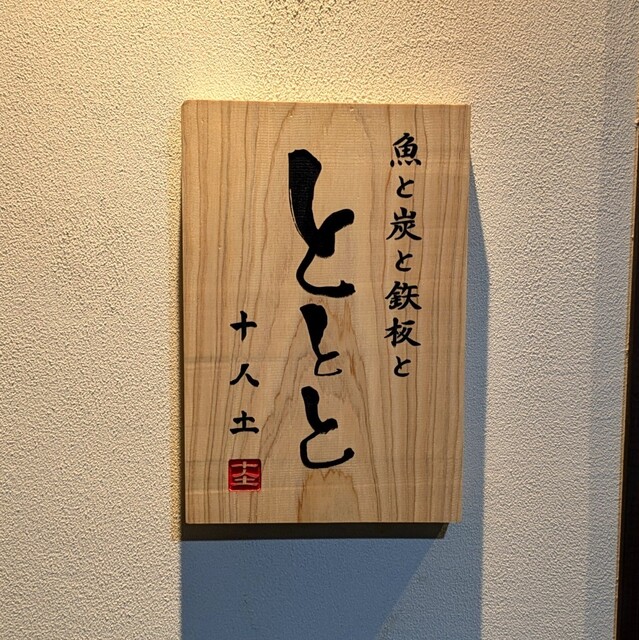 魚と炭と鉄板と
ととと
十人土
十人土